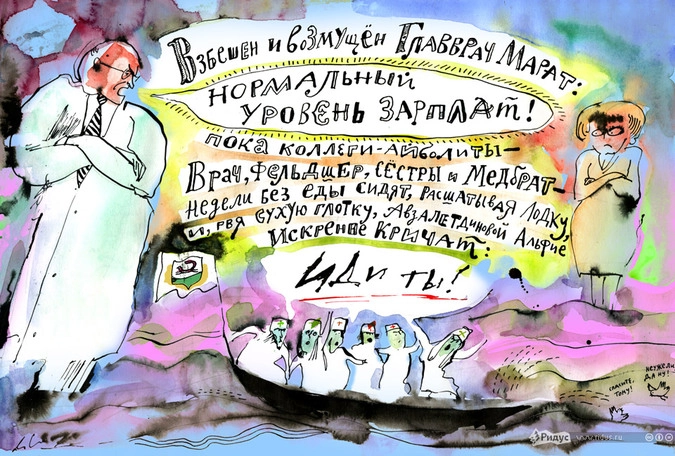 Взбешен и возмущён Главврач Марат:
НОРМАЛЬНЫЙ
УРОВЕНЬ ЗАРПЛАТ!
ПОКА КОЛЛЕГИ-АЙБОЛИТЫ-
Врач, фельдшер, сёстры и Медбрат-
Недели без еды сидят, расшатывая лодку,
и, рвя сухую глотку, Авзалетдиновой Альфие
Искренне кричат:
Иди ты!
НЕУЖЕЛИ
ДА НУ!
СПАСИТЕ,
ТОНУ!
Ридус
www.ridus.ru